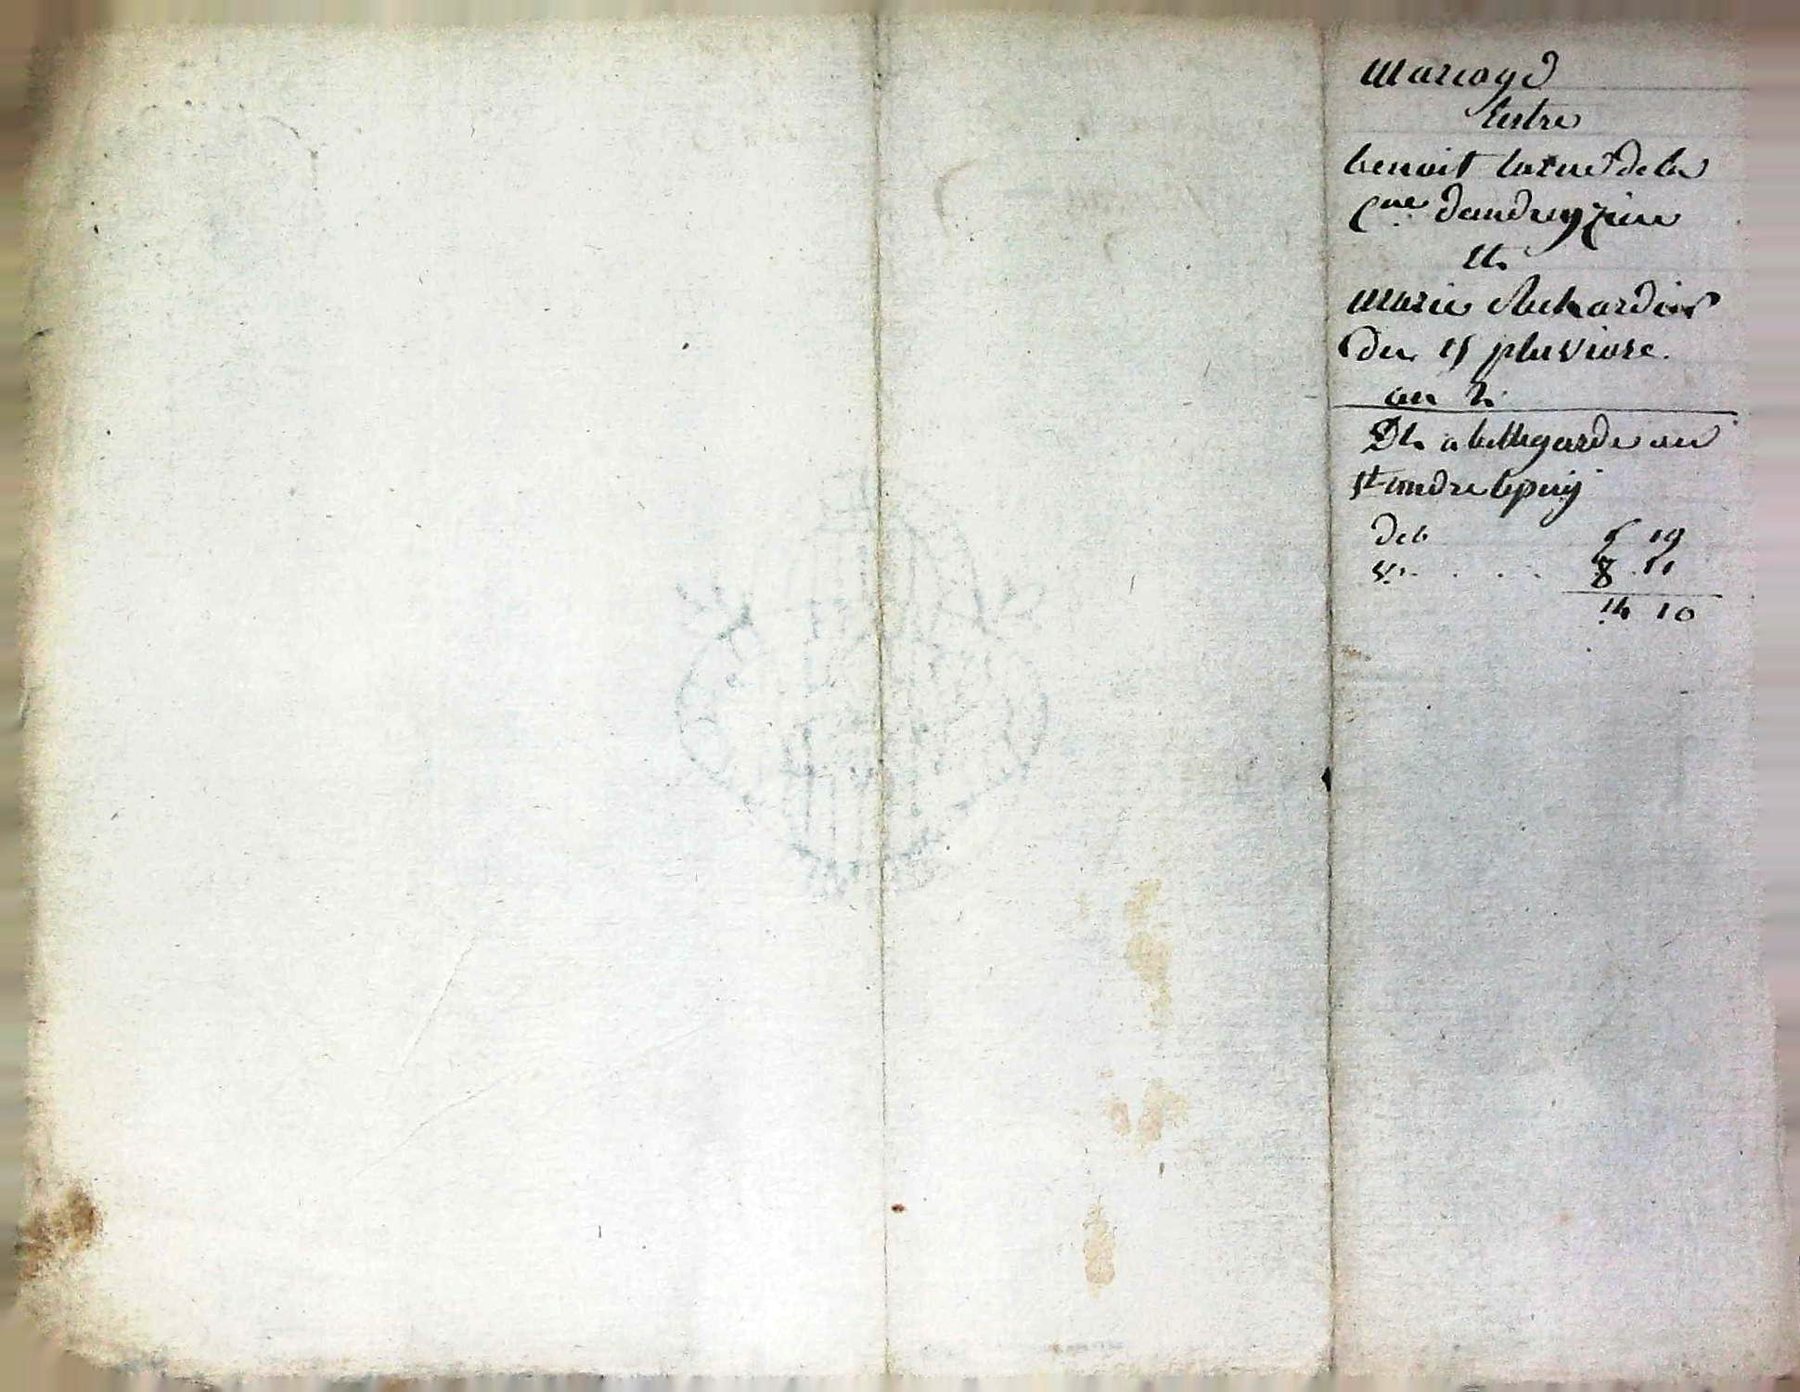 mariage
Entre
benoit larue de la
Cne dandrezieu
Et
marie Richardier
du 15 pluviose
an 2.
Dt a bellegarde ou
st andre le puy
deb 5 19
8 11
14 10